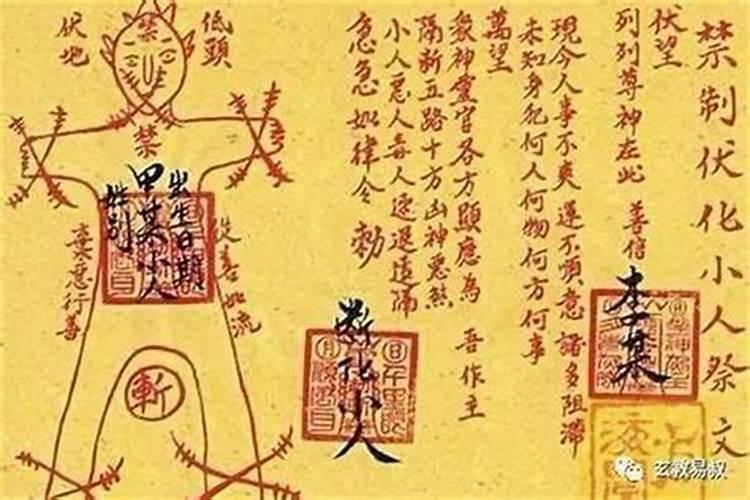 禁制伏化小人祭文
伏望
列列尊神在此 善信
李某
現今人事不爽運不順意諸多阻滞
未知身犯何人何物何方何事
萬望
眾神靈官各方顯應為 吾作主
隔斷五路十方凶神惡煞
小人惡人毒人速退遠隔
急急如律令 勅
斷化小人
低頭
伏地
禁
禁
出生日期
甲某小人
姓别
從善如流
棄惡行善
斬
玄教易叔